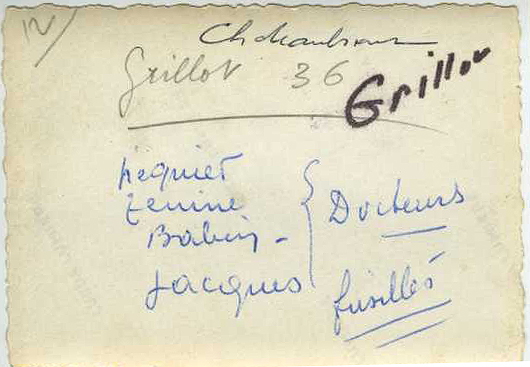 12/
Chateaubriant
Grillot 36 Grillot
Tenine
Babin - Docteurs
Jacques fusillés